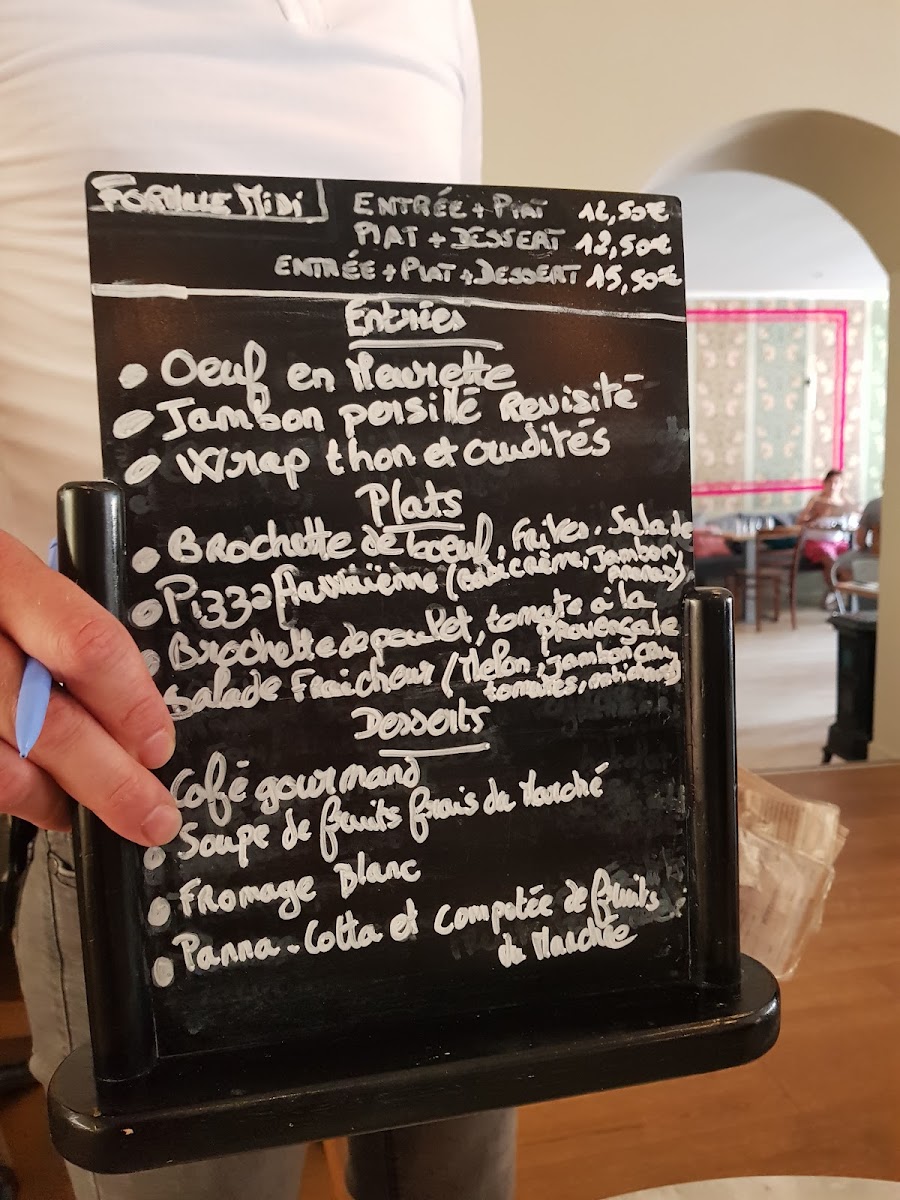 FORMULE MIDI ENTRÉE + PLAT 12,50€
PLAT + DESSERT 12,50€
ENTRÉE + PLAT + DESSERT 15,50€
Entrées
• Oeuf en Meurette
• Jambon persillé Revisité
• Wrap thon et crudités
Plats
• Brochette de boeuf, Frites, Salade
• Pizza Hawaïenne (base crème, Jambon,
Ananas)
• Brochette de poulet, tomate à la
provençale
Salade Fraicheur (Melon, Jambon cru,
tomates,
Desserts
Café gourmand
• Soupe de fruits frais du Marché
• Fromage Blanc
• Panna-Cotta et Compotée de fruits
du Marché